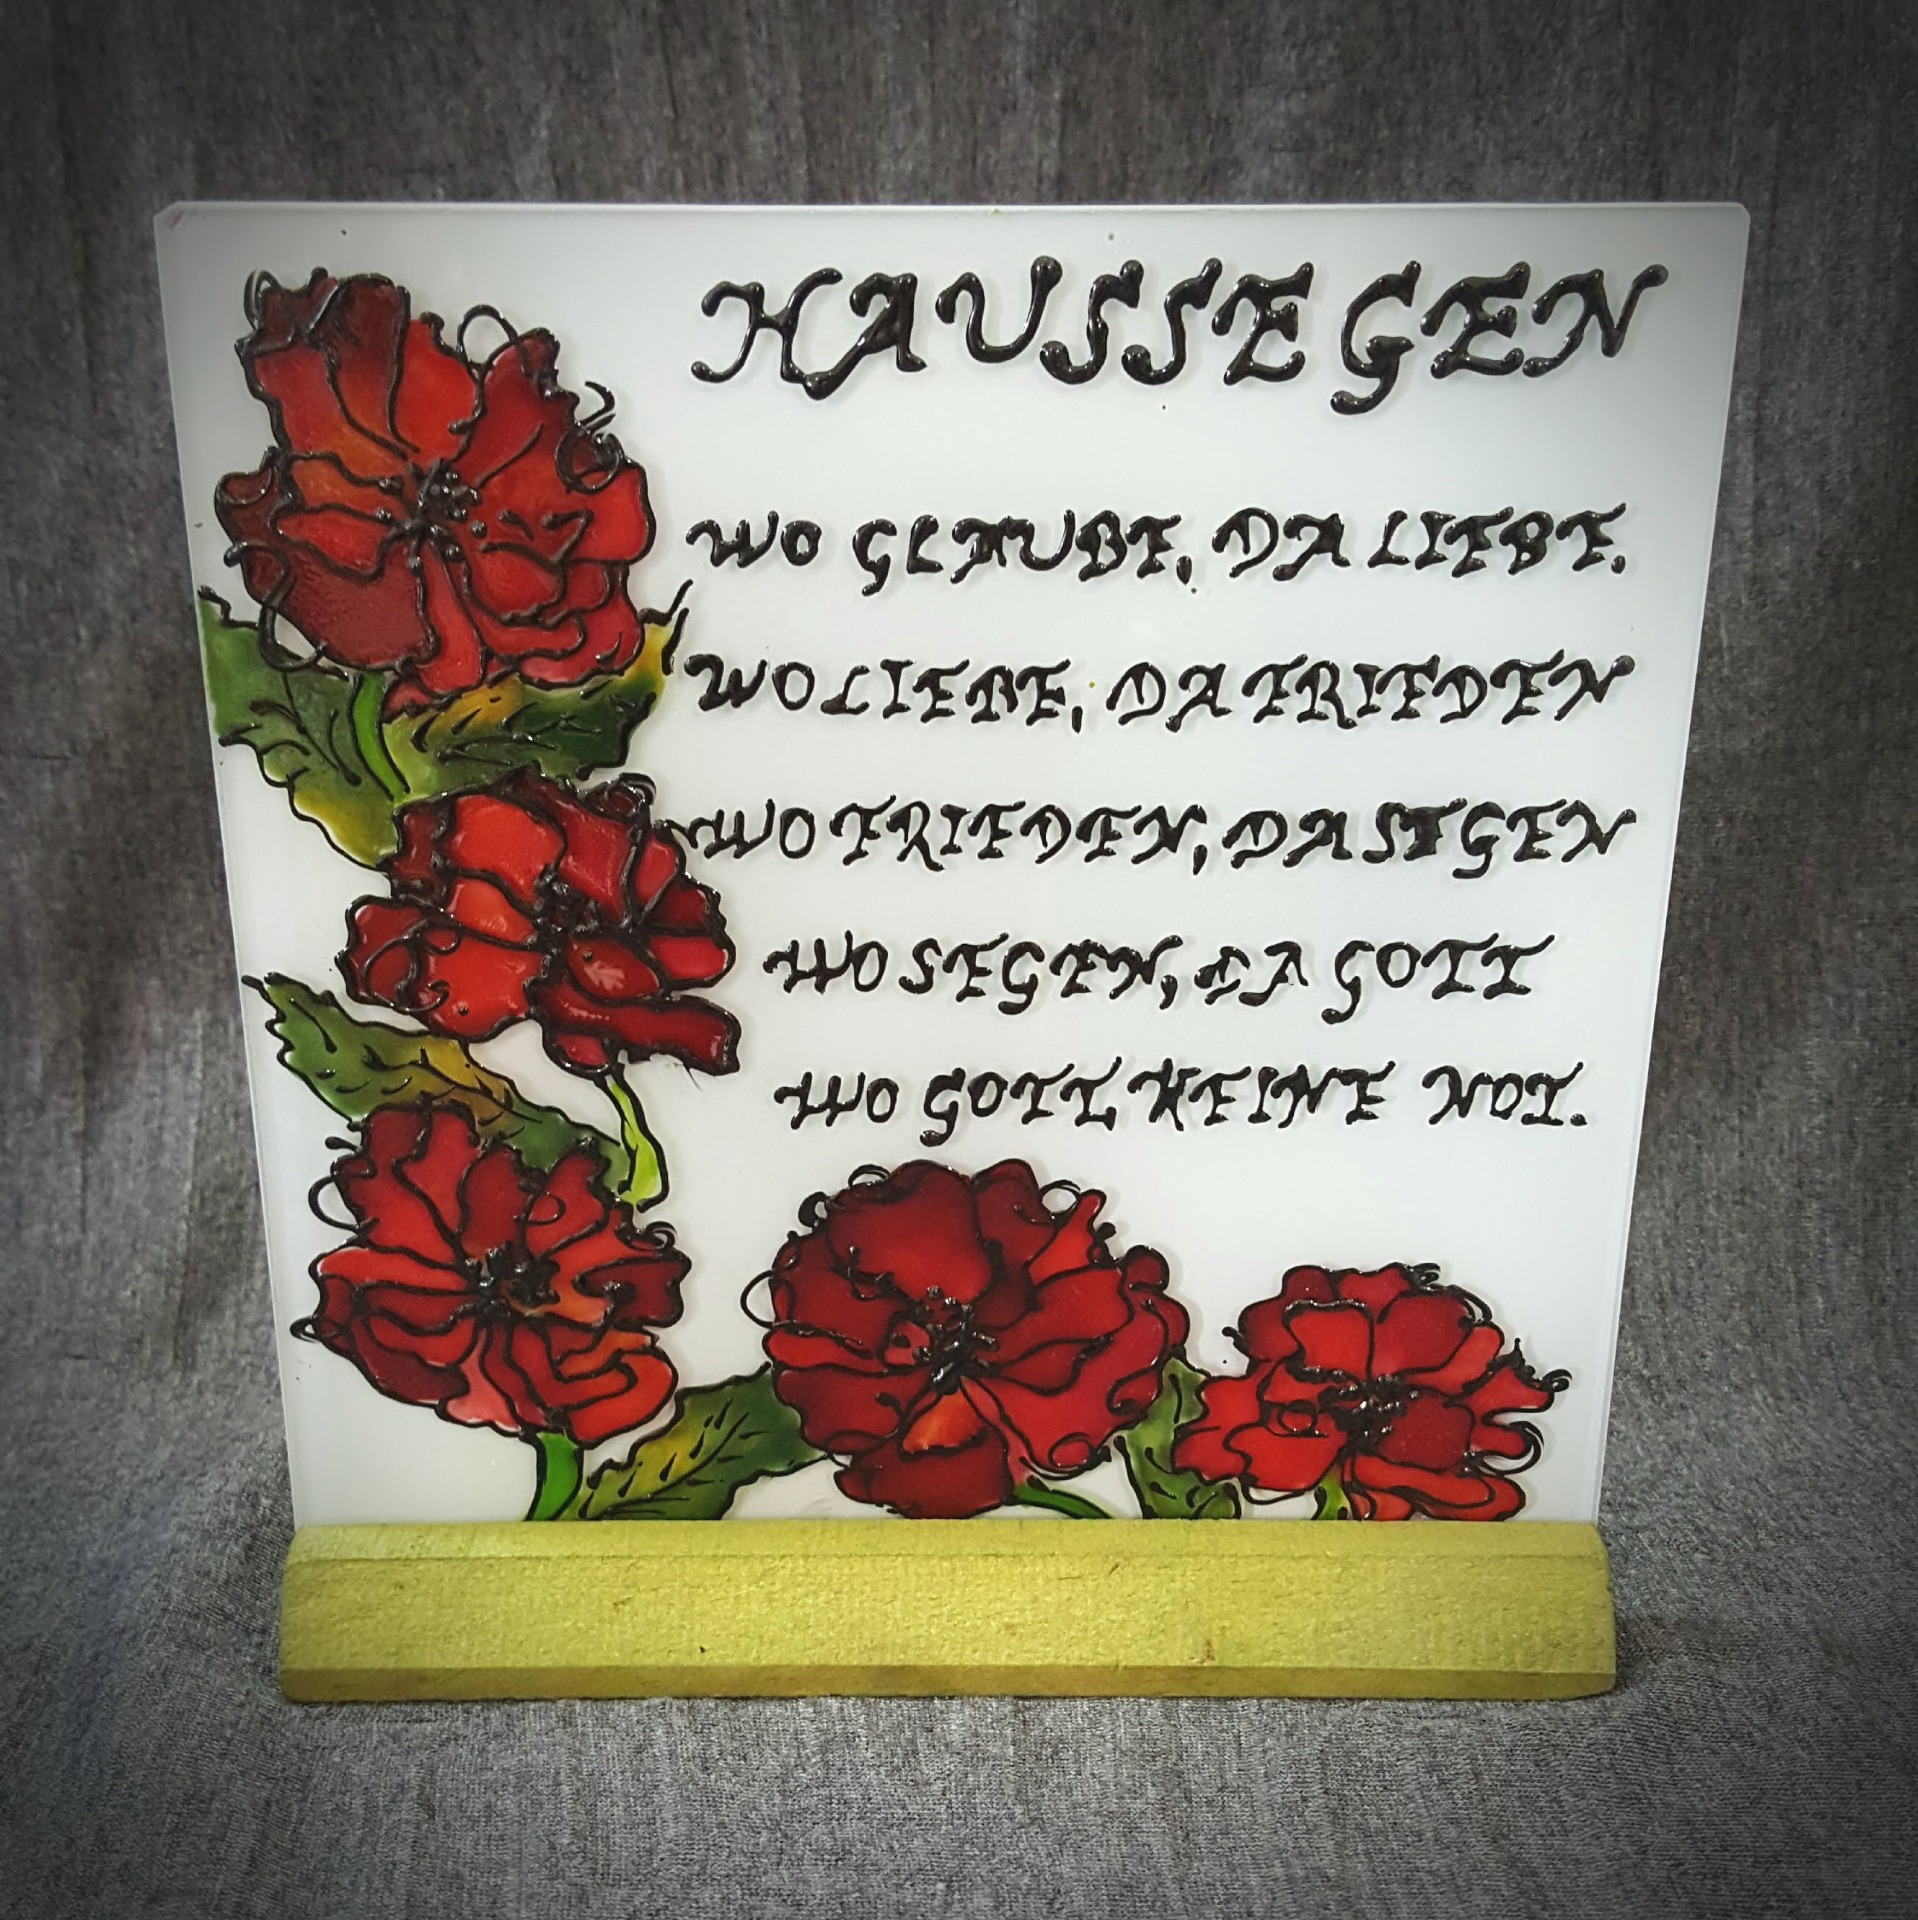 HAUSSEGEN
WO GLAUBE, DA LIEBE.
WO LIEBE, DA FRIEDEN
WO FRIEDEN, DA SEGEN
WO SEGEN, DA GOTT
WO GOTT KEINE NOT.